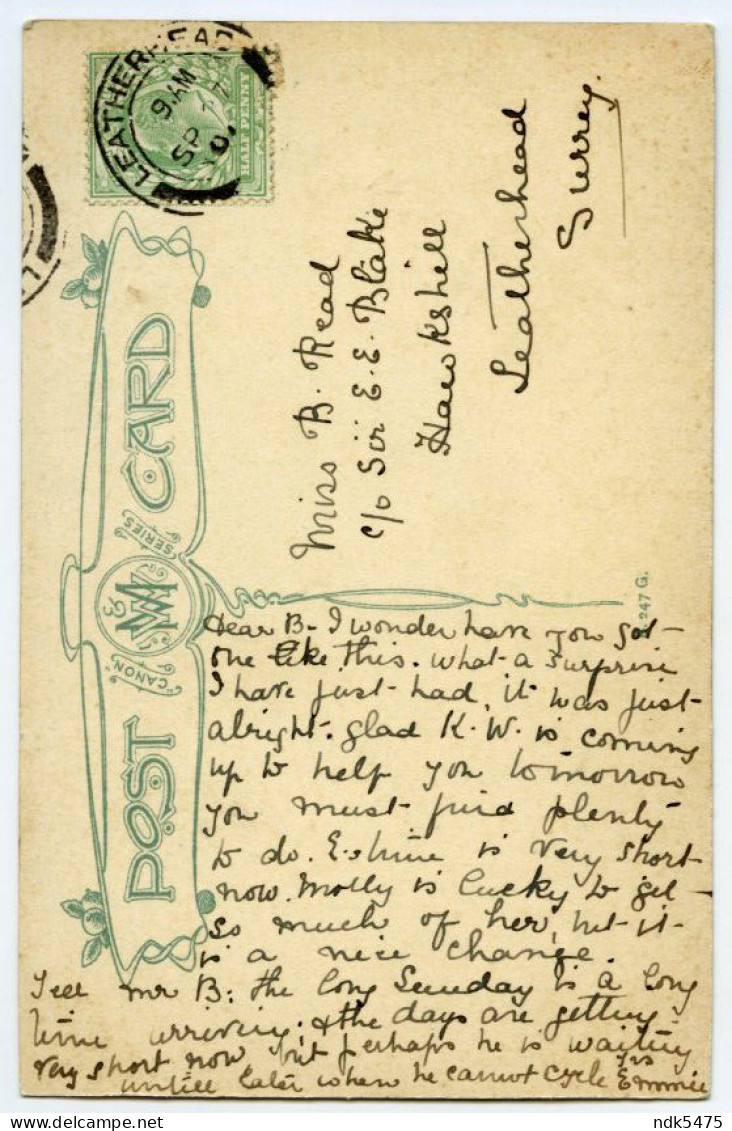 LEATHERHEAD
9 AM
SP 11
10
HALF PENNY
POST CARD
"CANON" SERIES
247 G.
Miss B. Read
c/o Sir E. E. Blake
Hawkshill
Leatherhead
Surrey.
Dear B- I wonder have you got
one like this. what a surprise
I have just had, it was just
alright. glad K. W. is coming
up to help you tomorrow
you must find plenty
to do. E.s time is very short
now. Molly is lucky to get
so much of her, but it
is a nice change.
Tell Mr B: the long Sunday is a long
time arriving; & the days are getting
very short now, but perhaps he is waiting
untill later when he cannot cycle Yrs Emmie
ndk5475